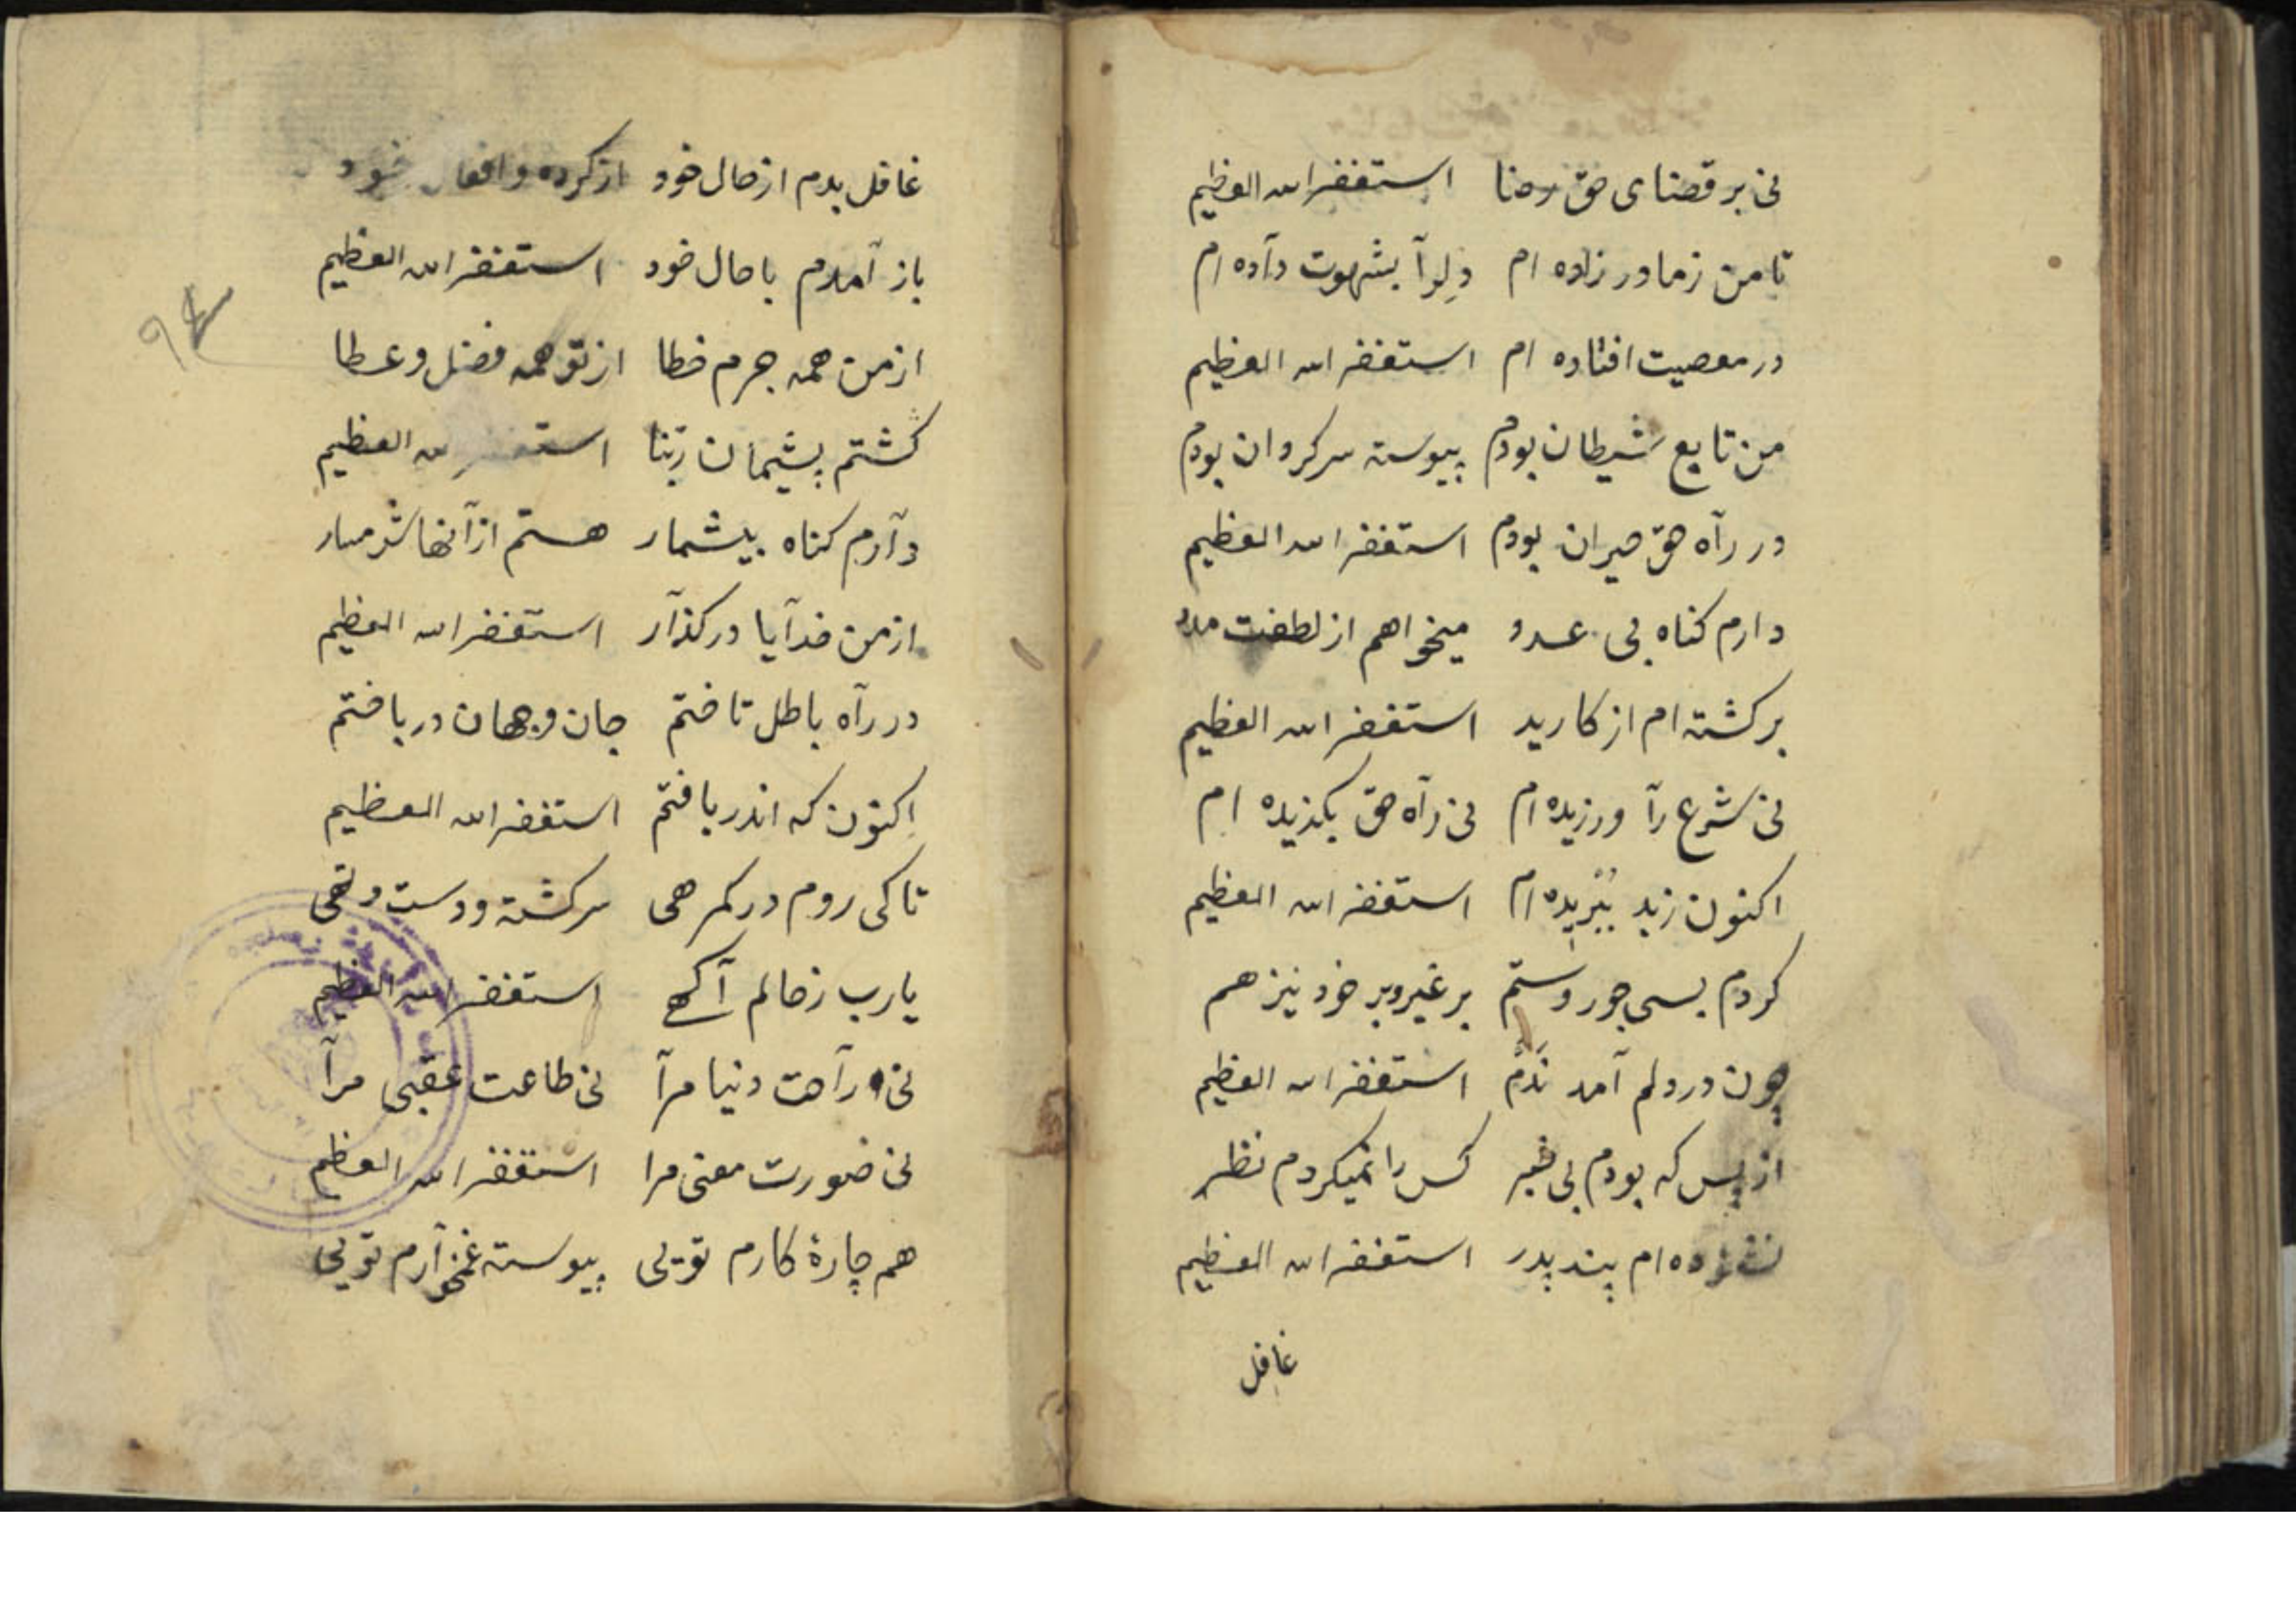 نی بر قضای حق رضا استغفر الله العظیم
تا من ز مادر زاده ام دلرآ بشهوت دآده ام
در معصیت افتاده ام استغفر الله العظیم
من تابع شیطان بودم پیوسته سرکردان بودم
در رآه حق حیران بودم استغفر الله العظیم
دارم کناه بی عدد میخواهم از لطفت مدد
برکشته ام از کار بد استغفر الله العظیم
نی شرع رآ ورزیده ام نی رآه حق بکزیده ام
اکنون زبد ببریده ام استغفر الله العظیم
کردم بسی جور و ستم بر غیر و بر خود نیز هم
چون در دلم آمد ندم استغفر الله العظیم
از بس که بودم بی خبر کس را نمیکردم نظر
ام پند پدر استغفر الله العظیم
غافل
غافل بدم از حال خود از کرده و افعال خود
باز آمدم با حال خود استغفر الله العظیم
از من همه جرم خطا از تو همه فضل و عطا
کشتم پشیمان ربنا استغفر الله العظیم
دآرم کناه بیشمار هستم از آنها شرمسار
از من خدآیا درکذآر استغفر الله العظیم
در رآه باطل تاختم جان و جهان درباختم
اکنون که اندر یافتم استغفر الله العظیم
تا کی روم در کمرهی سرکشته و دست و تهی
یارب ز حالم آکهی استغفر الله العظیم
نی رآحت دنیا مرآ نی طاعت عقبی مرآ
نی صورت معنی مرا استغفر الله العظیم
هم چارۀ کارم تویی پیوسته غمخوآرم تویی